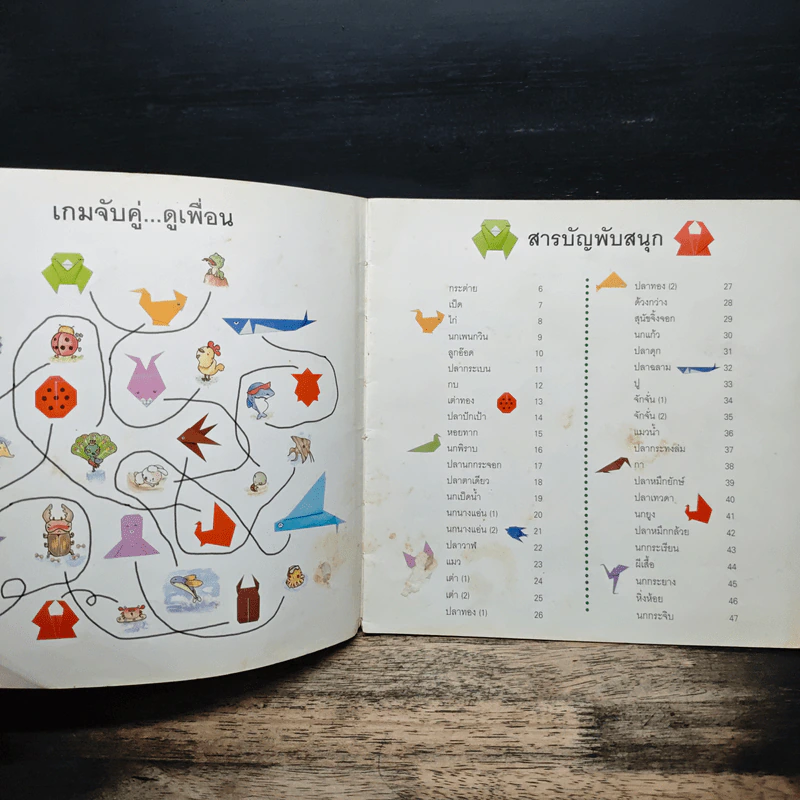 เกมจับคู่...ดูเพื่อน
สารบัญพับสนุก
กระต่าย 6
เป็ด 7
ไก่ 8
นกเพนกวิน 9
ลูกอ๊อด 10
ปลากระเบน 11
กบ 12
เต่าทอง 13
ปลาปักเป้า 14
หอยทาก 15
นกพิราบ 16
ปลานกกระจอก 17
ปลาตาเดียว 18
นกเป็ดน้ำ 19
นกนางแอ่น (1) 20
นกนางแอ่น (2) 21
ปลาวาฬ 22
แมว 23
เต่า (1) 24
เต่า (2) 25
ปลาทอง (1) 26
ปลาทอง (2) 27
ด้วงกว่าง 28
สุนัขจิ้งจอก 29
นกแก้ว 30
ปลาดุก 31
ปลาฉลาม 32
ปู 33
จักจั่น (1) 34
จักจั่น (2) 35
แมวน้ำ 36
ปลากระทุงเหว 37
กา 38
ปลาหมึกยักษ์ 39
ปลาเทวดา 40
นกยูง 41
ปลาหมึกกล้วย 42
นกกระเรียน 43
ผีเสื้อ 44
นกกระยาง 45
หิ่งห้อย 46
นกกระจิบ 47